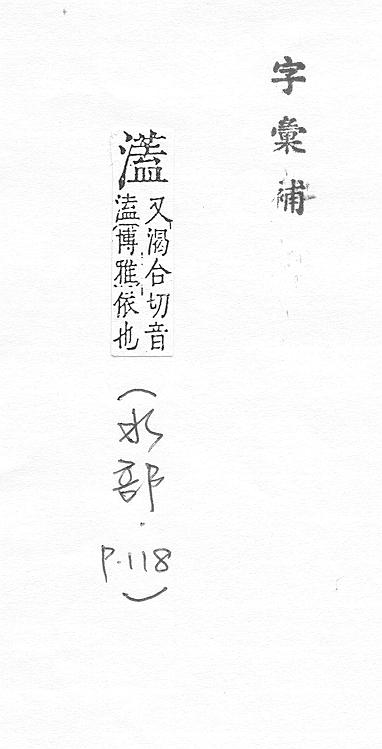 字彙補
濭
又渴合切音
溘博雅依也
（水部．P.118）